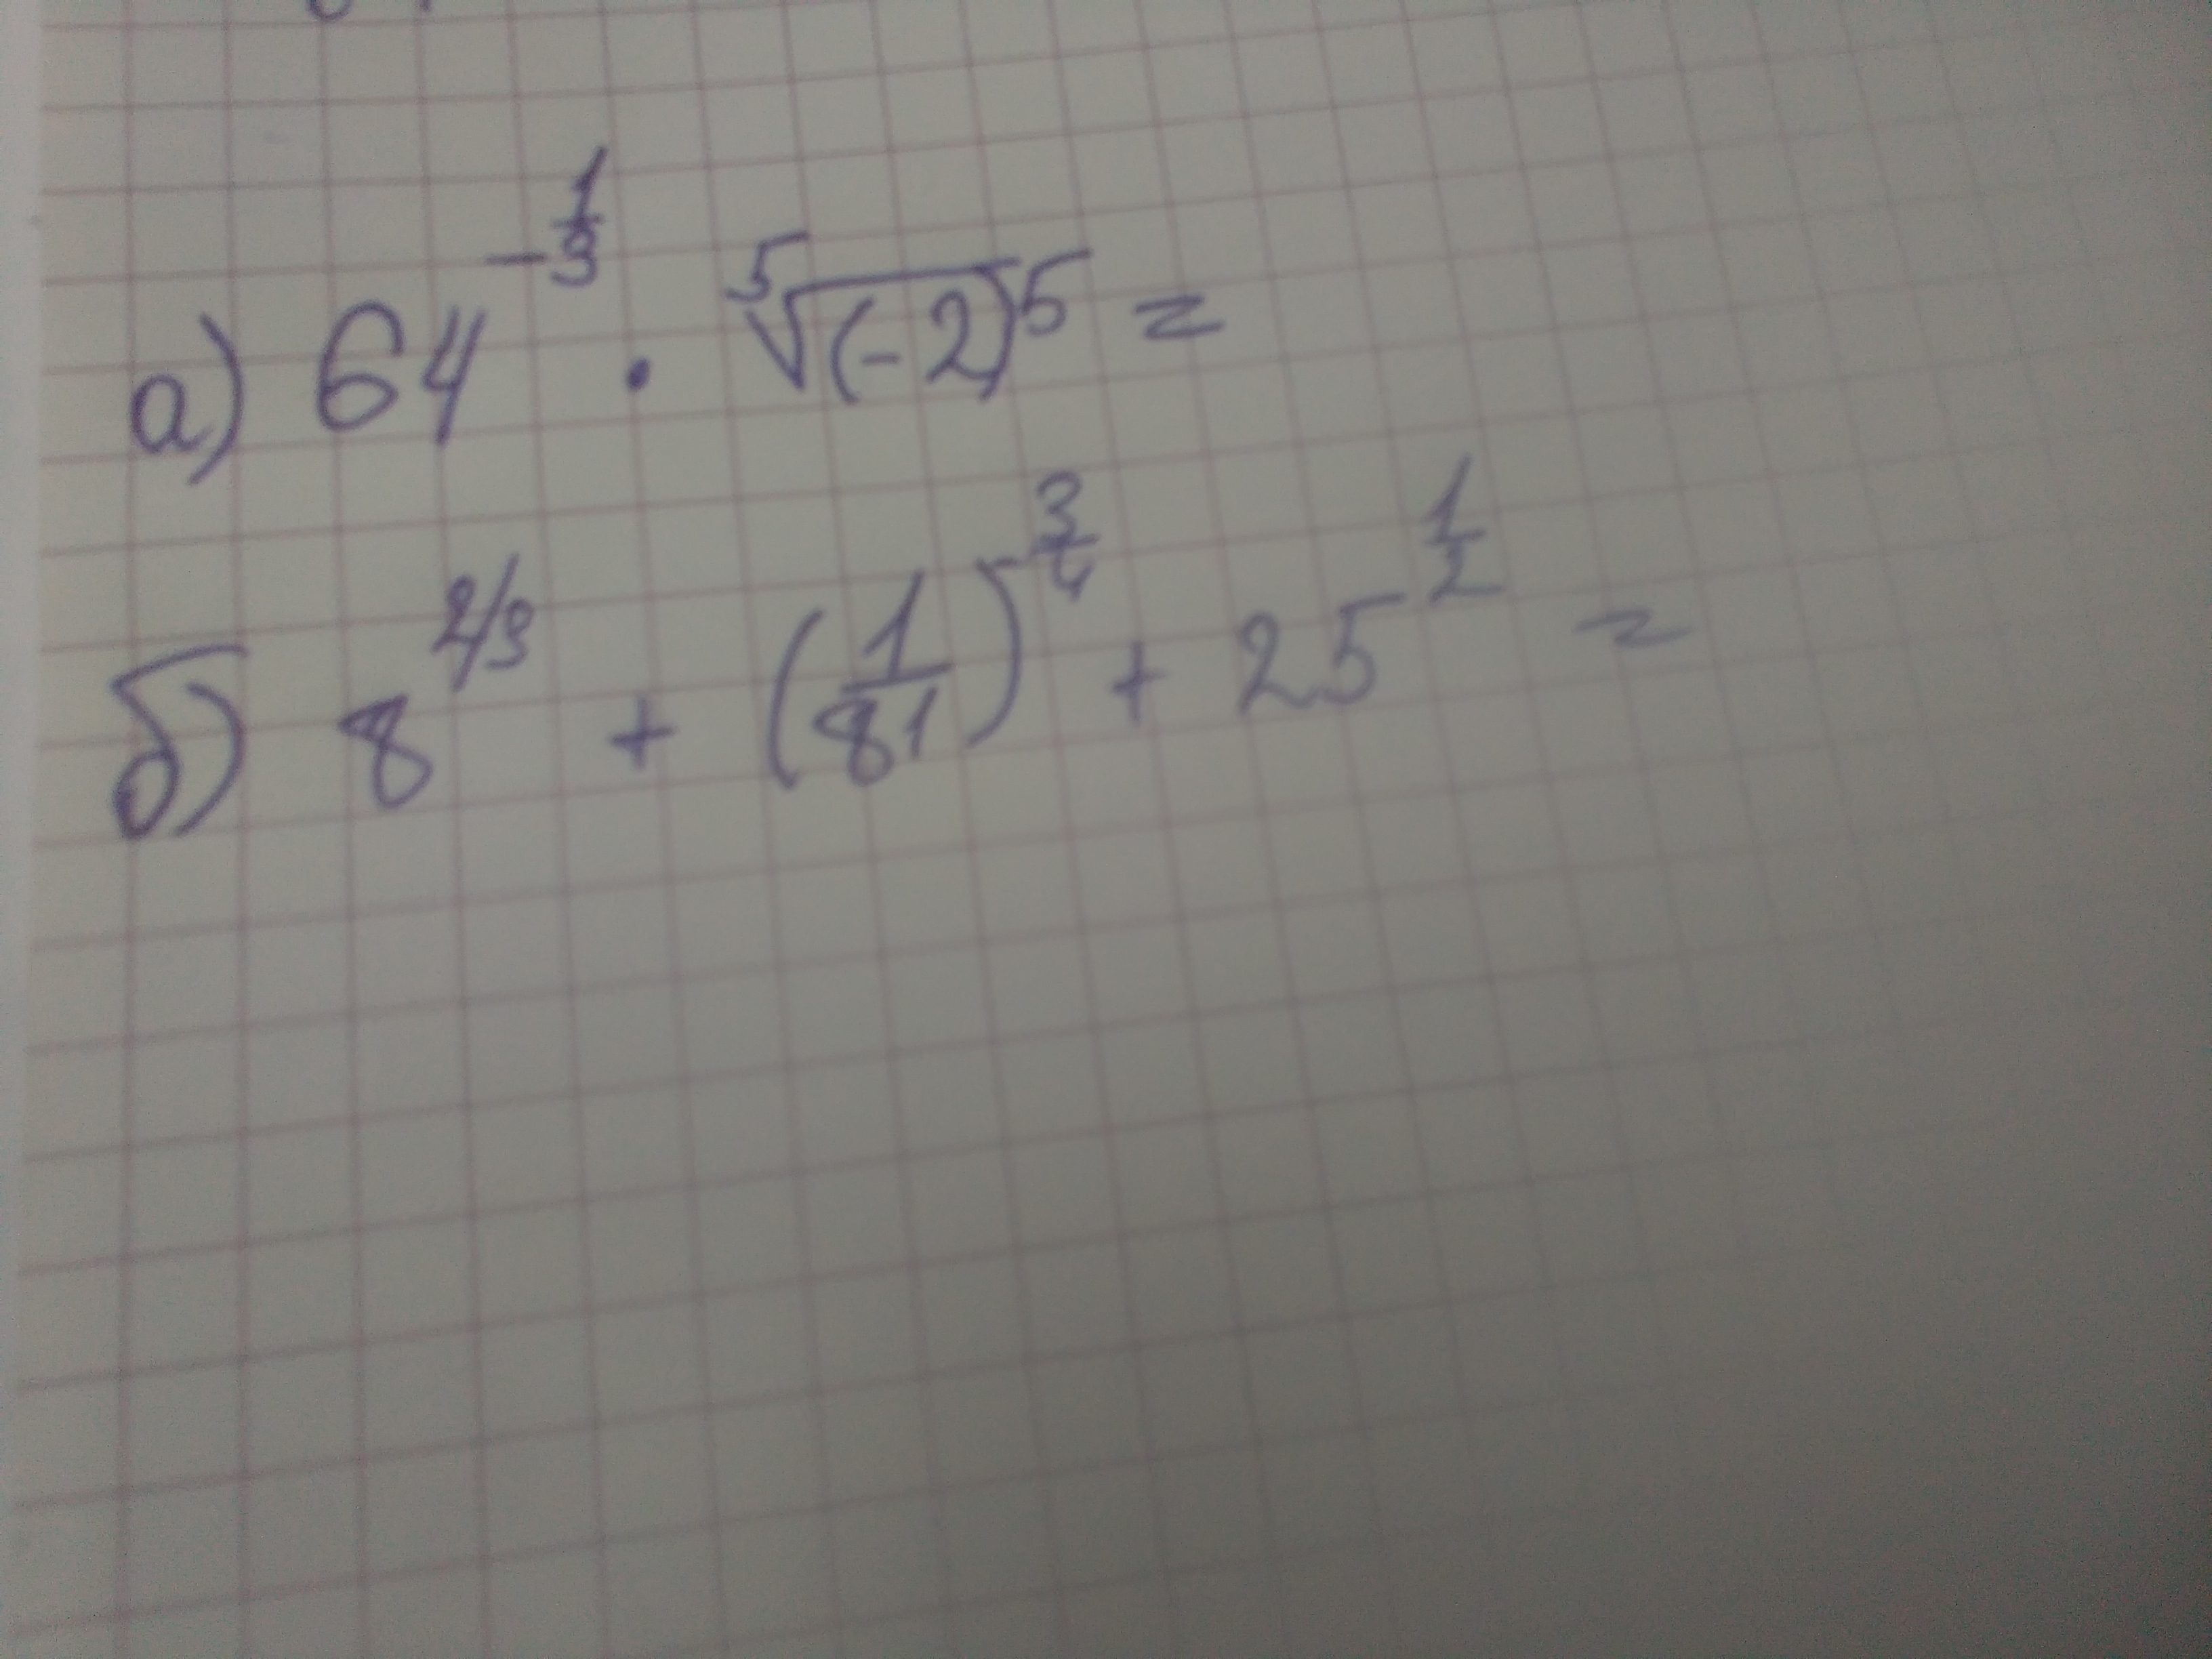 а) 64^{-\frac{1}{3}} · \sqrt[5]{(-2)^5} =
б) 8^{2/3} + (\frac{1}{81})^{-\frac{3}{4}} + 25^{\frac{1}{2}} =